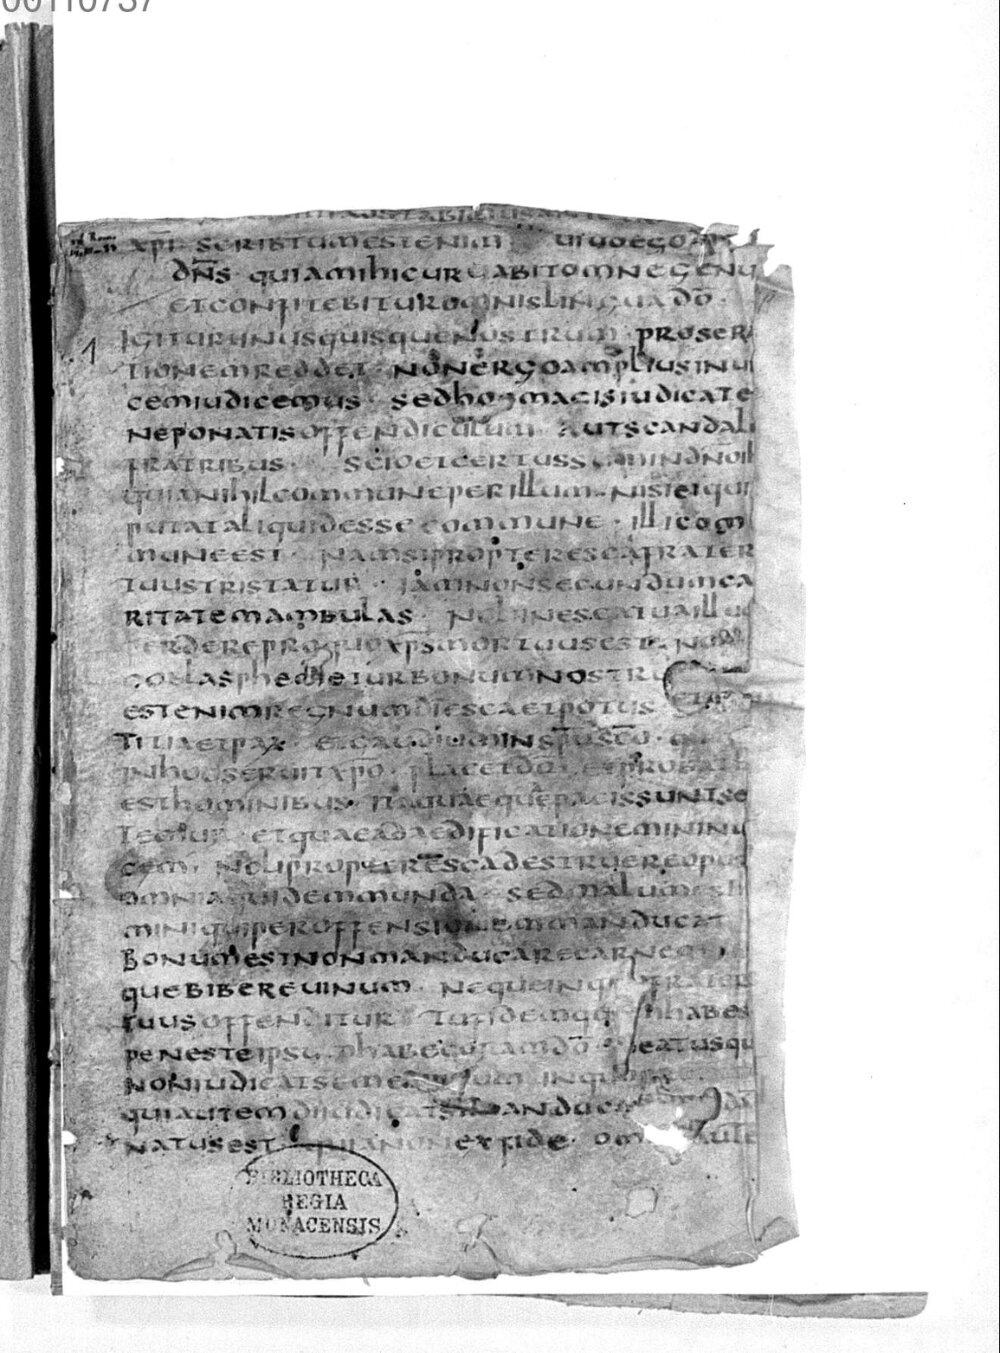 00110737
STABIMUS AN
XPI · SCRIBTUM EST ENIM UIUO EGO
DN̄S · QUIA MIHI CURUABIT OMNE GENU
ET CONFITEBITUR OMNIS LINGUA DŌ ·
1 IGITUR UNUSQUISQUE NOSTRUM PRO SE R
TIONEM REDDET · NON ERGO AMPLIUS INUI
CEM IUDICEMUS · SED HOC MAGIS IUDICATE
NE PONATIS OFFENDICULUM AUT SCANDALI
FRATRIBUS · SCIO ET CERTUS SUM IN DN̄O IH
QUIA NIHIL COMMUNE PER ILLUM · NISI EI QUI
PUTAT ALIQUID ESSE COMMUNE · ILLI COM
MUNE EST · NAM SI PROPTER ESCA FRATER
TUUS TRISTATUR · IAM NON SECUNDUM CA
RITATEM AMBULAS · NOLI IN ESCA TUA ILLU
PERDERE PRO QUO XP̄S MORTUUS EST · NON
BLASPHEMETUR BONUM NOSTRU
EST ENIM REGNUM DĪ ESCA ET POTUS
TITIA ET PAX · ET GAUDIUM IN SPŪ SCŌ · QUI
IN HOC SERUIT XPŌ · PLACET DŌ · ET PROBAT
EST HOMINIBUS · ITAQUAE QUAE PACIS SUNT SE
TEMUR · ET QUAE AD AEDIFICATIONEM IN INUI
CEM · NOLI PROPTER ESCA DESTRUERE OPUS
OMNIA QUIDEM MUNDA · SED MALUM EST H
MINI QUI PER OFFENSIONEM MANDUCAT
BONUM EST NON MANDUCARE CARNEM
QUE BIBERE UINUM · NEQUE IN QUO FRATER
TUUS OFFENDITUR TU FIDEM QUA HABES
PENES TE IPSU HABE CORAM DŌ · BEATUS QUI
NON IUDICAT SEMETIPSUM IN QUO
QUI AUTEM DIIUDICAT SI MANDUCA
NATUS EST · QUIA NON EX FIDE · OM AUTE
BIBLIOTHECA
REGIA
MONACENSIS